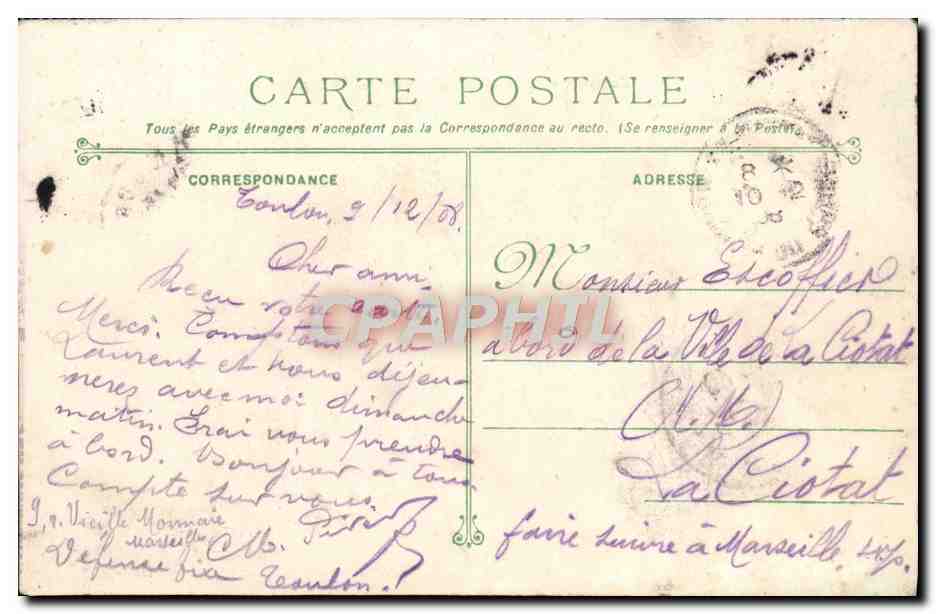 CARTE POSTALE
Tous les Pays étrangers n'acceptent pas la Correspondance au recto. (Se renseigner à la Poste)
CORRESPONDANCE
Toulon, 9/12/08.
Cher ami,
Reçu votre carte
Merci. Comptons que
Laurent et nous déjeu-
nerez avec moi dimanche
matin. Irai vous prendre
à bord. Bonjour à tous
Compte sur vous.
9, r. Vieille Monnaie
Marseille
M.
Défense fixe Toulon.
ADRESSE
8 X 12
10 08
Monsieur Escoffier
à bord de la Ville de la Ciotat
(M.M.)
La Ciotat
faire suivre à Marseille svp.
CPAPHIL